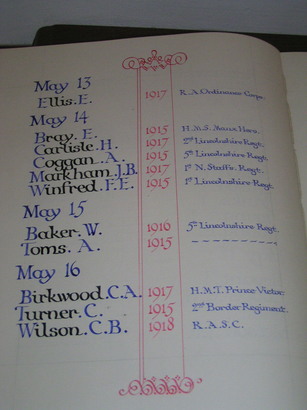 May 13
Ellis. E. 1917 R.A. Ordinance Corps.
May 14
Bray. E. 1915 H.M.S.
Carlisle. H. 1917 2nd Lincolnshire Regt.
Coggan. A. 1915 5th Lincolnshire Regt.
Markham. J.B. 1917 1st N. Staffs. Regt.
Winfred. F.E. 1915 1st Lincolnshire Regt.
May 15
Baker. W. 1916 5th Lincolnshire Regt.
Toms. A. 1915 - - - - - - - - - -
May 16
Birkwood. C.A. 1917 H.M.T. Prince Victor.
Turner. C. 1915 2nd Border Regiment.
Wilson. C.B. 1918 R.A.S.C.